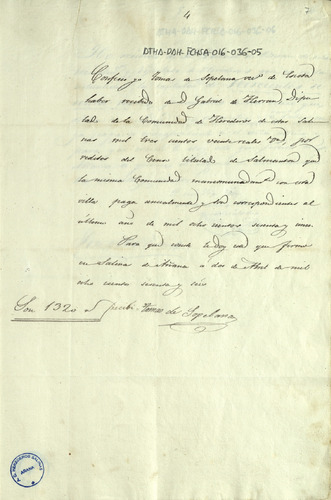 4
7
ATHA-DAH-FCHSA-016-036-05
Confieso yo Tomas de Sopelana vec.º de
haber recibido de D. Gabriel de Herran Dipu-
tado de la Comunidad de Herederos de estas Sali-
nas mil tres cientos veinte reales von, por
reditos del Censo titulado de que
la misma Comunidad mancomunadamte con esta
villa paga anualmente y son correspondientes al
último año de mil ocho cientos sesenta y cinco.
Para que conste le doy este que firmo
en Salinas de Añana a dos de Abril de mil
ocho cientos sesenta y seis
Son 1320 rs Tomas de Sopelana
A.C. HEREDEROS SALINAS AÑANA